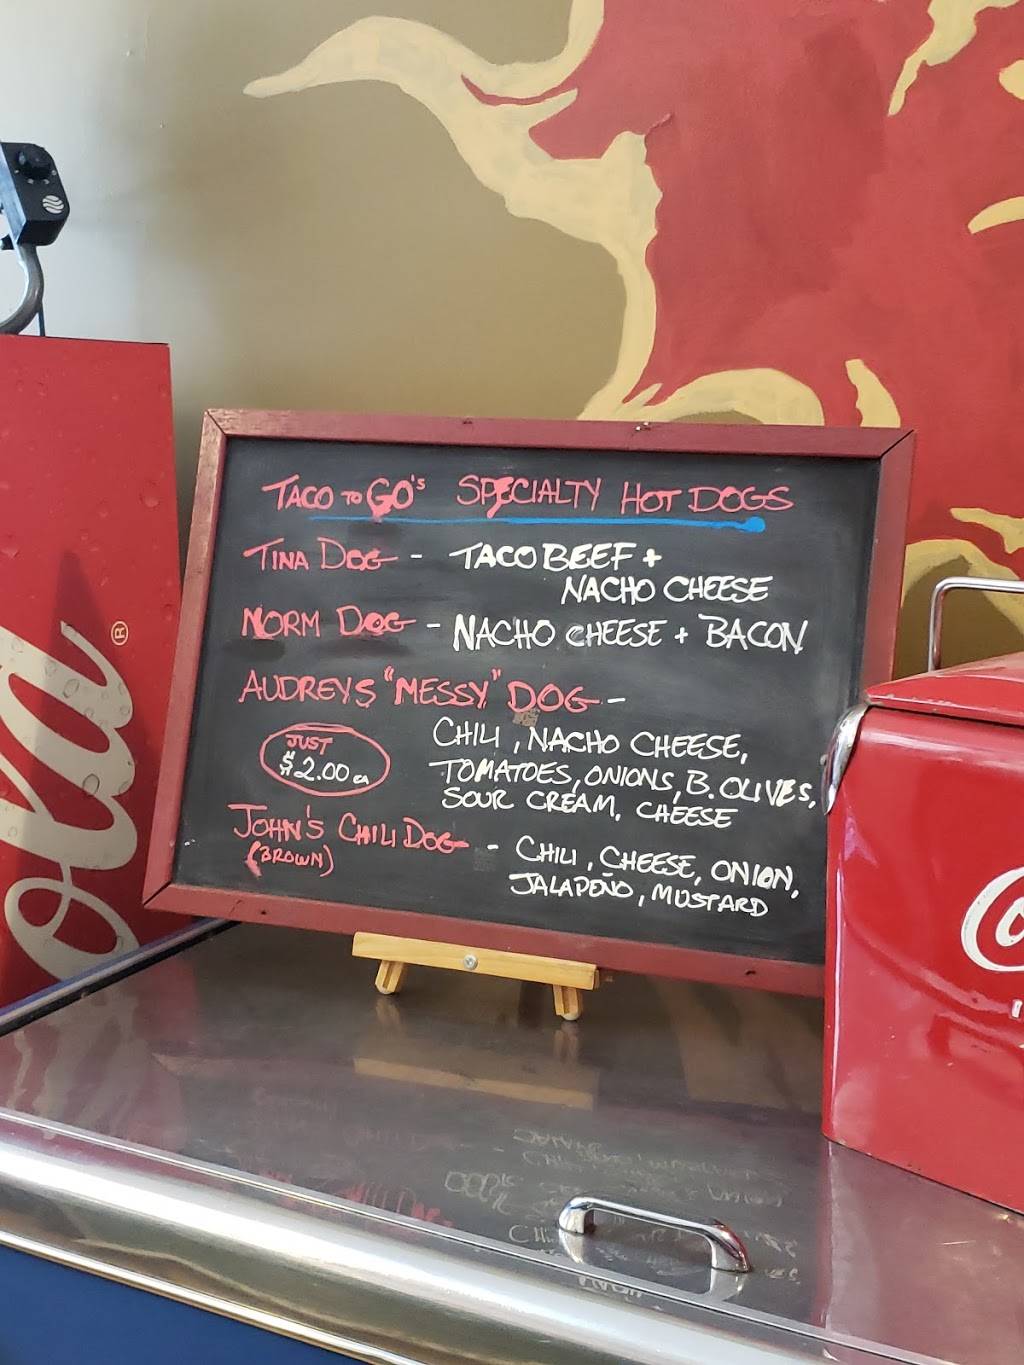 TACO TO GO'S SPECIALTY HOT DOGS
TINA DOG - TACO BEEF +
NACHO CHEESE
NORM DOG - NACHO CHEESE + BACON
AUDREYS "MESSY" DOG -
CHILI, NACHO CHEESE,
TOMATOES, ONIONS, B. OLIVES,
SOUR CREAM, CHEESE
JUST
$2.00 ea
JOHN'S CHILI DOG - CHILI, CHEESE, ONION,
(BROWN)
JALAPEÑO, MUSTARD
ola®
Co